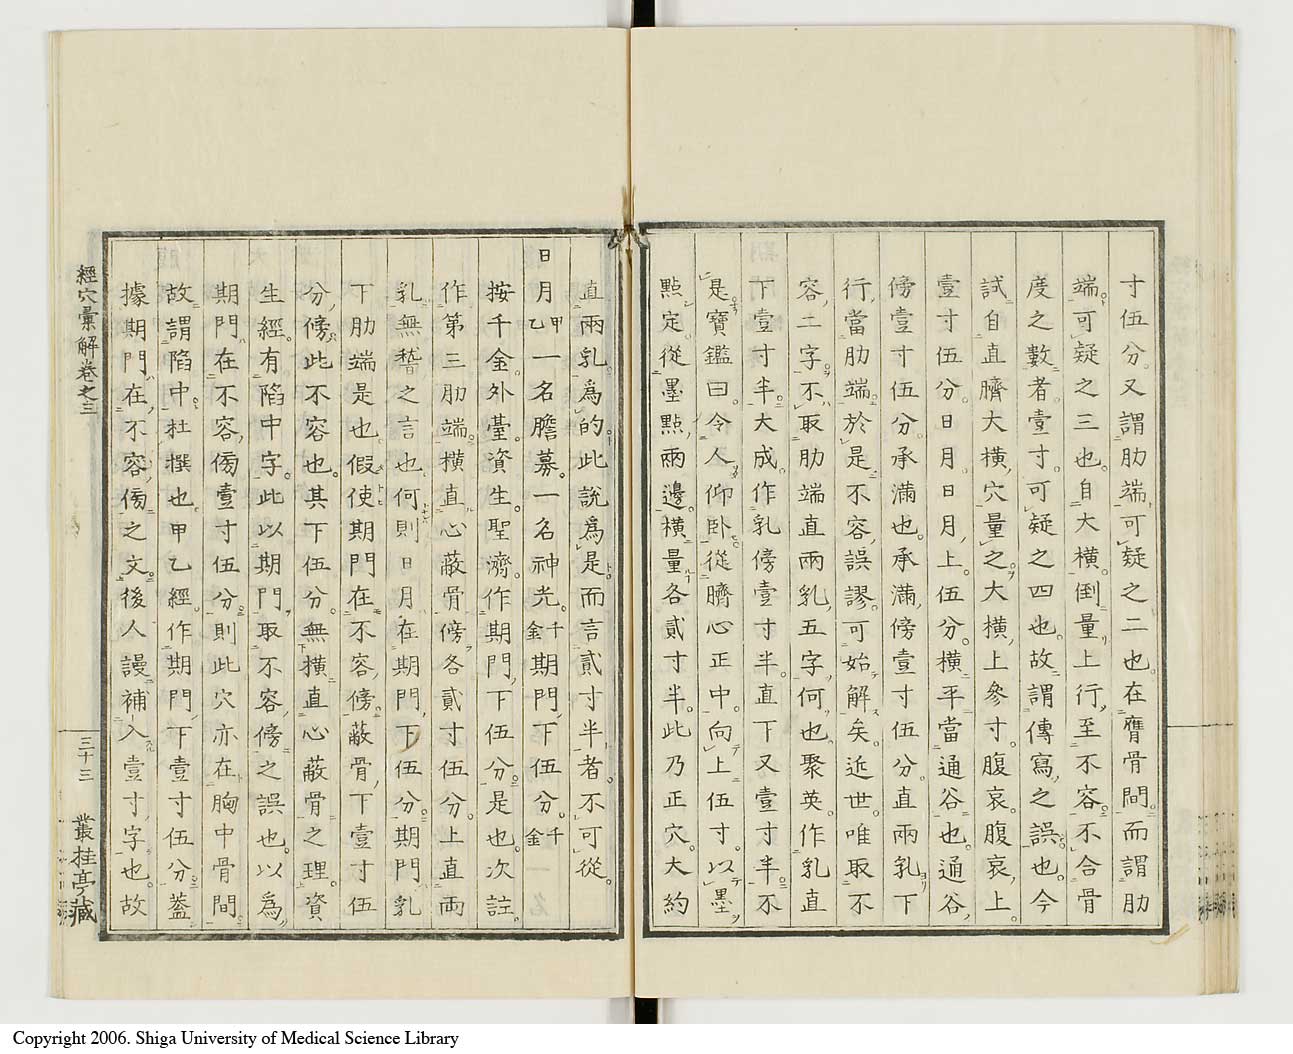 寸伍分。又謂肋端、可疑之二也。在膺骨間、而謂肋
端。可疑之三也。自大橫。倒量上行、至不容。不合骨
度之數者。壹寸。可疑之四也。故謂傳寫之誤也。今
試自直臍大橫、穴量之。大橫、上參寸。腹哀。腹哀、上。
壹寸伍分。日月。日月、上。伍分。橫平當通谷也。通谷、
傍壹寸伍分。承滿也。承滿、傍壹寸伍分。直兩乳下
行、當肋端。於是不容、誤謬。可始解矣。近世。唯取不
容、二字。不取肋端直兩乳、五字、何也。聚英。作乳直
下壹寸半。大成。作乳傍壹寸半。直下又壹寸半。不
是。寶鑑曰。令人仰臥。從臍心正中。向上伍寸。以墨
點定。從墨點、兩邊。橫量各貳寸半。此乃正穴。大約
直兩乳。爲的。此說爲是。而言貳寸半者。不可從。
日月 甲乙 一名膽募。一名神光。千金 期門、下伍分。千金
按千金。外臺。資生。聖濟。作期門、下伍分。是也。次註。
作第三肋端。橫直心蔽骨傍各貳寸伍分。上直兩
乳。無瞽之言也。何則日月。在期門、下伍分。期門、乳
下肋端是也。假使期門在不容、傍。蔽骨、下壹寸伍
分、傍。此不容也。其下伍分。無橫直心蔽骨之理。資
生經。有陷中字。此以期門、取不容、傍之誤也。以爲、
期門在不容、傍壹寸伍分、則此穴亦在胸中骨間。
故謂陷中。杜撰也。甲乙經。作期門、下壹寸伍分。蓋
據期門、在不容、傍之文。後人謾補入壹寸、字也。故
經穴彙解卷之三
三十三
叢桂亭藏
Copyright 2006. Shiga University of Medical Science Library